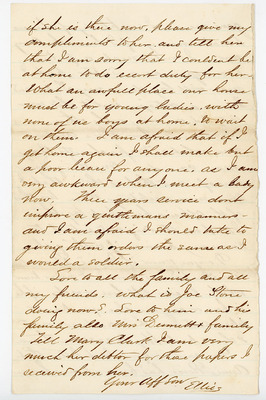 if she is there now, please give my
compliments to her and tell her
that I am sorry that I couldent be
at home to do escort duty for her.
What an awfull place our house
must be for young ladies with
none of us boys at home, to wait
on them. I am afraid that if I
get home again I shall make but
a poor beau for anyone, as I am
very awkward when I meet a lady
now. Three years service dont
improve a gentlemans manners
and I am afraid I should take to
giving them orders the same as I
would a soldier.
Love to all the family and all
my friends. What is Joe Stone
doing now? Love to him and his
family also Mrs Dennett & family
Tell Mary Clark I am very
much her debtor for those papers I
received from her.
Your Aff Son Ellis